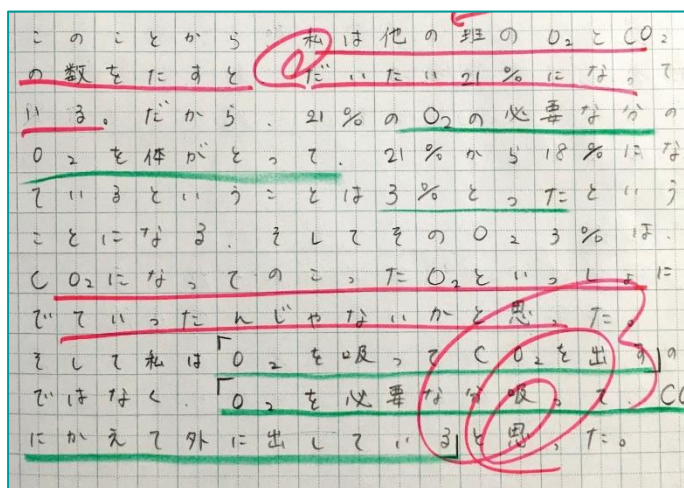 このことから 私は他の班のO₂とCO₂
の数をたすと だいたい21%になって
いる。だから、21%のO₂の必要な分の
O₂を体がとって、21%から18%にな
ているということは3%とったという
ことになる、そしてそのO₂3%は、
CO₂になってのこったO₂といっしょに
でていったんじゃないかと思った。
そして私は「O₂を吸ってCO₂を出す」の
ではなく、「O₂を必要な分吸って、CO
にかえて外に出している」と思った。